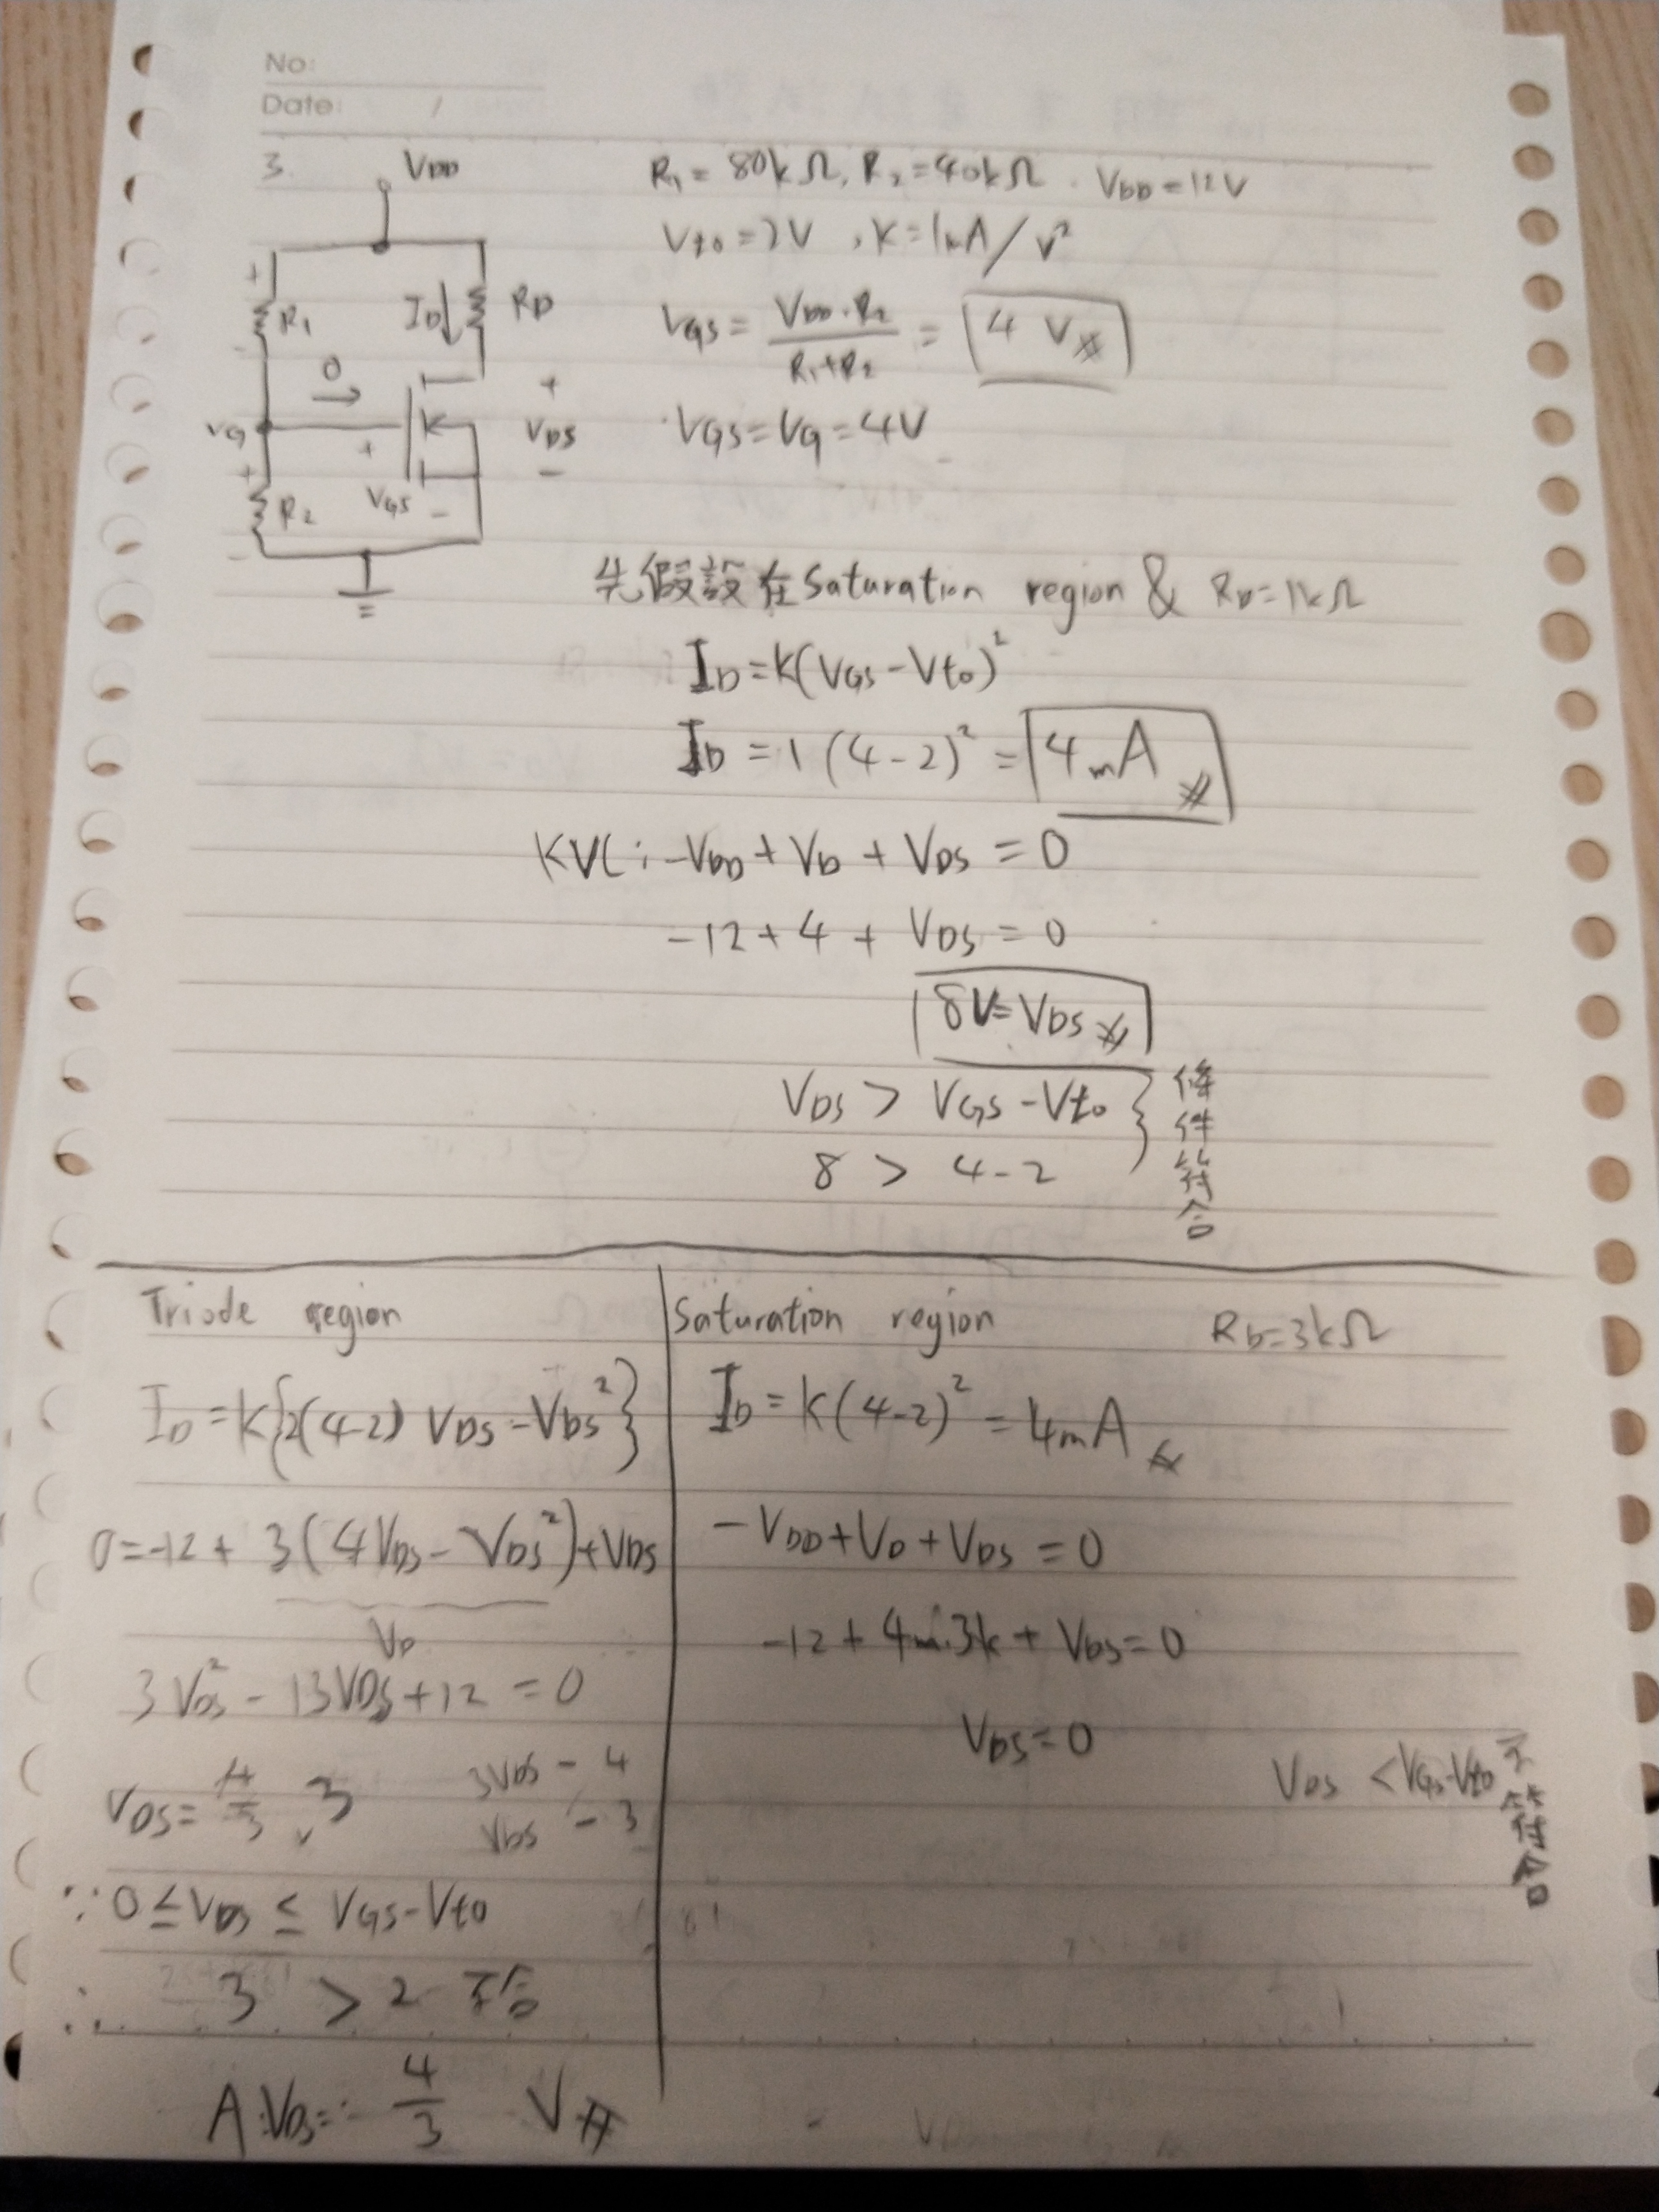 No:
Date: /
3.
VDD
R1 = 80kΩ, R2 = 40kΩ. VDD = 12V
Vto = 2V , K = 1mA/V²
+
R1
-
ID↓
RD
VGS = VDD·R2 / R1+R2 = 4 V
0
→
+
VDS
-
VG
+
VGS
-
+
R2
-
VGS = VG = 4V
先假設在 Saturation region & RD = 1kΩ
ID = K(VGS - Vto)²
ID = 1 (4-2)² = 4mA
KVL: -VDD + VD + VDS = 0
-12 + 4 + VDS = 0
8V = VDS
VDS > VGS - Vto
8 > 4-2
條件符合
Triode region
ID = K{2(4-2) VDS - VDS²}
0 = -12 + 3(4VDS - VDS²) + VDS
VD
3VDS² - 13VDS + 12 = 0
VDS = 4/3, 3
3VDS - 4
VDS - 3
∵ 0 ≤ VDS ≤ VGS - Vto
∴ 3 > 2 不合
A: VDS = 4/3 V
Saturation region RD = 3kΩ
ID = K(4-2)² = 4mA
-VDD + VD + VDS = 0
-12 + 4m·3k + VDS = 0
VDS = 0
VDS < VGS - Vto 不符合